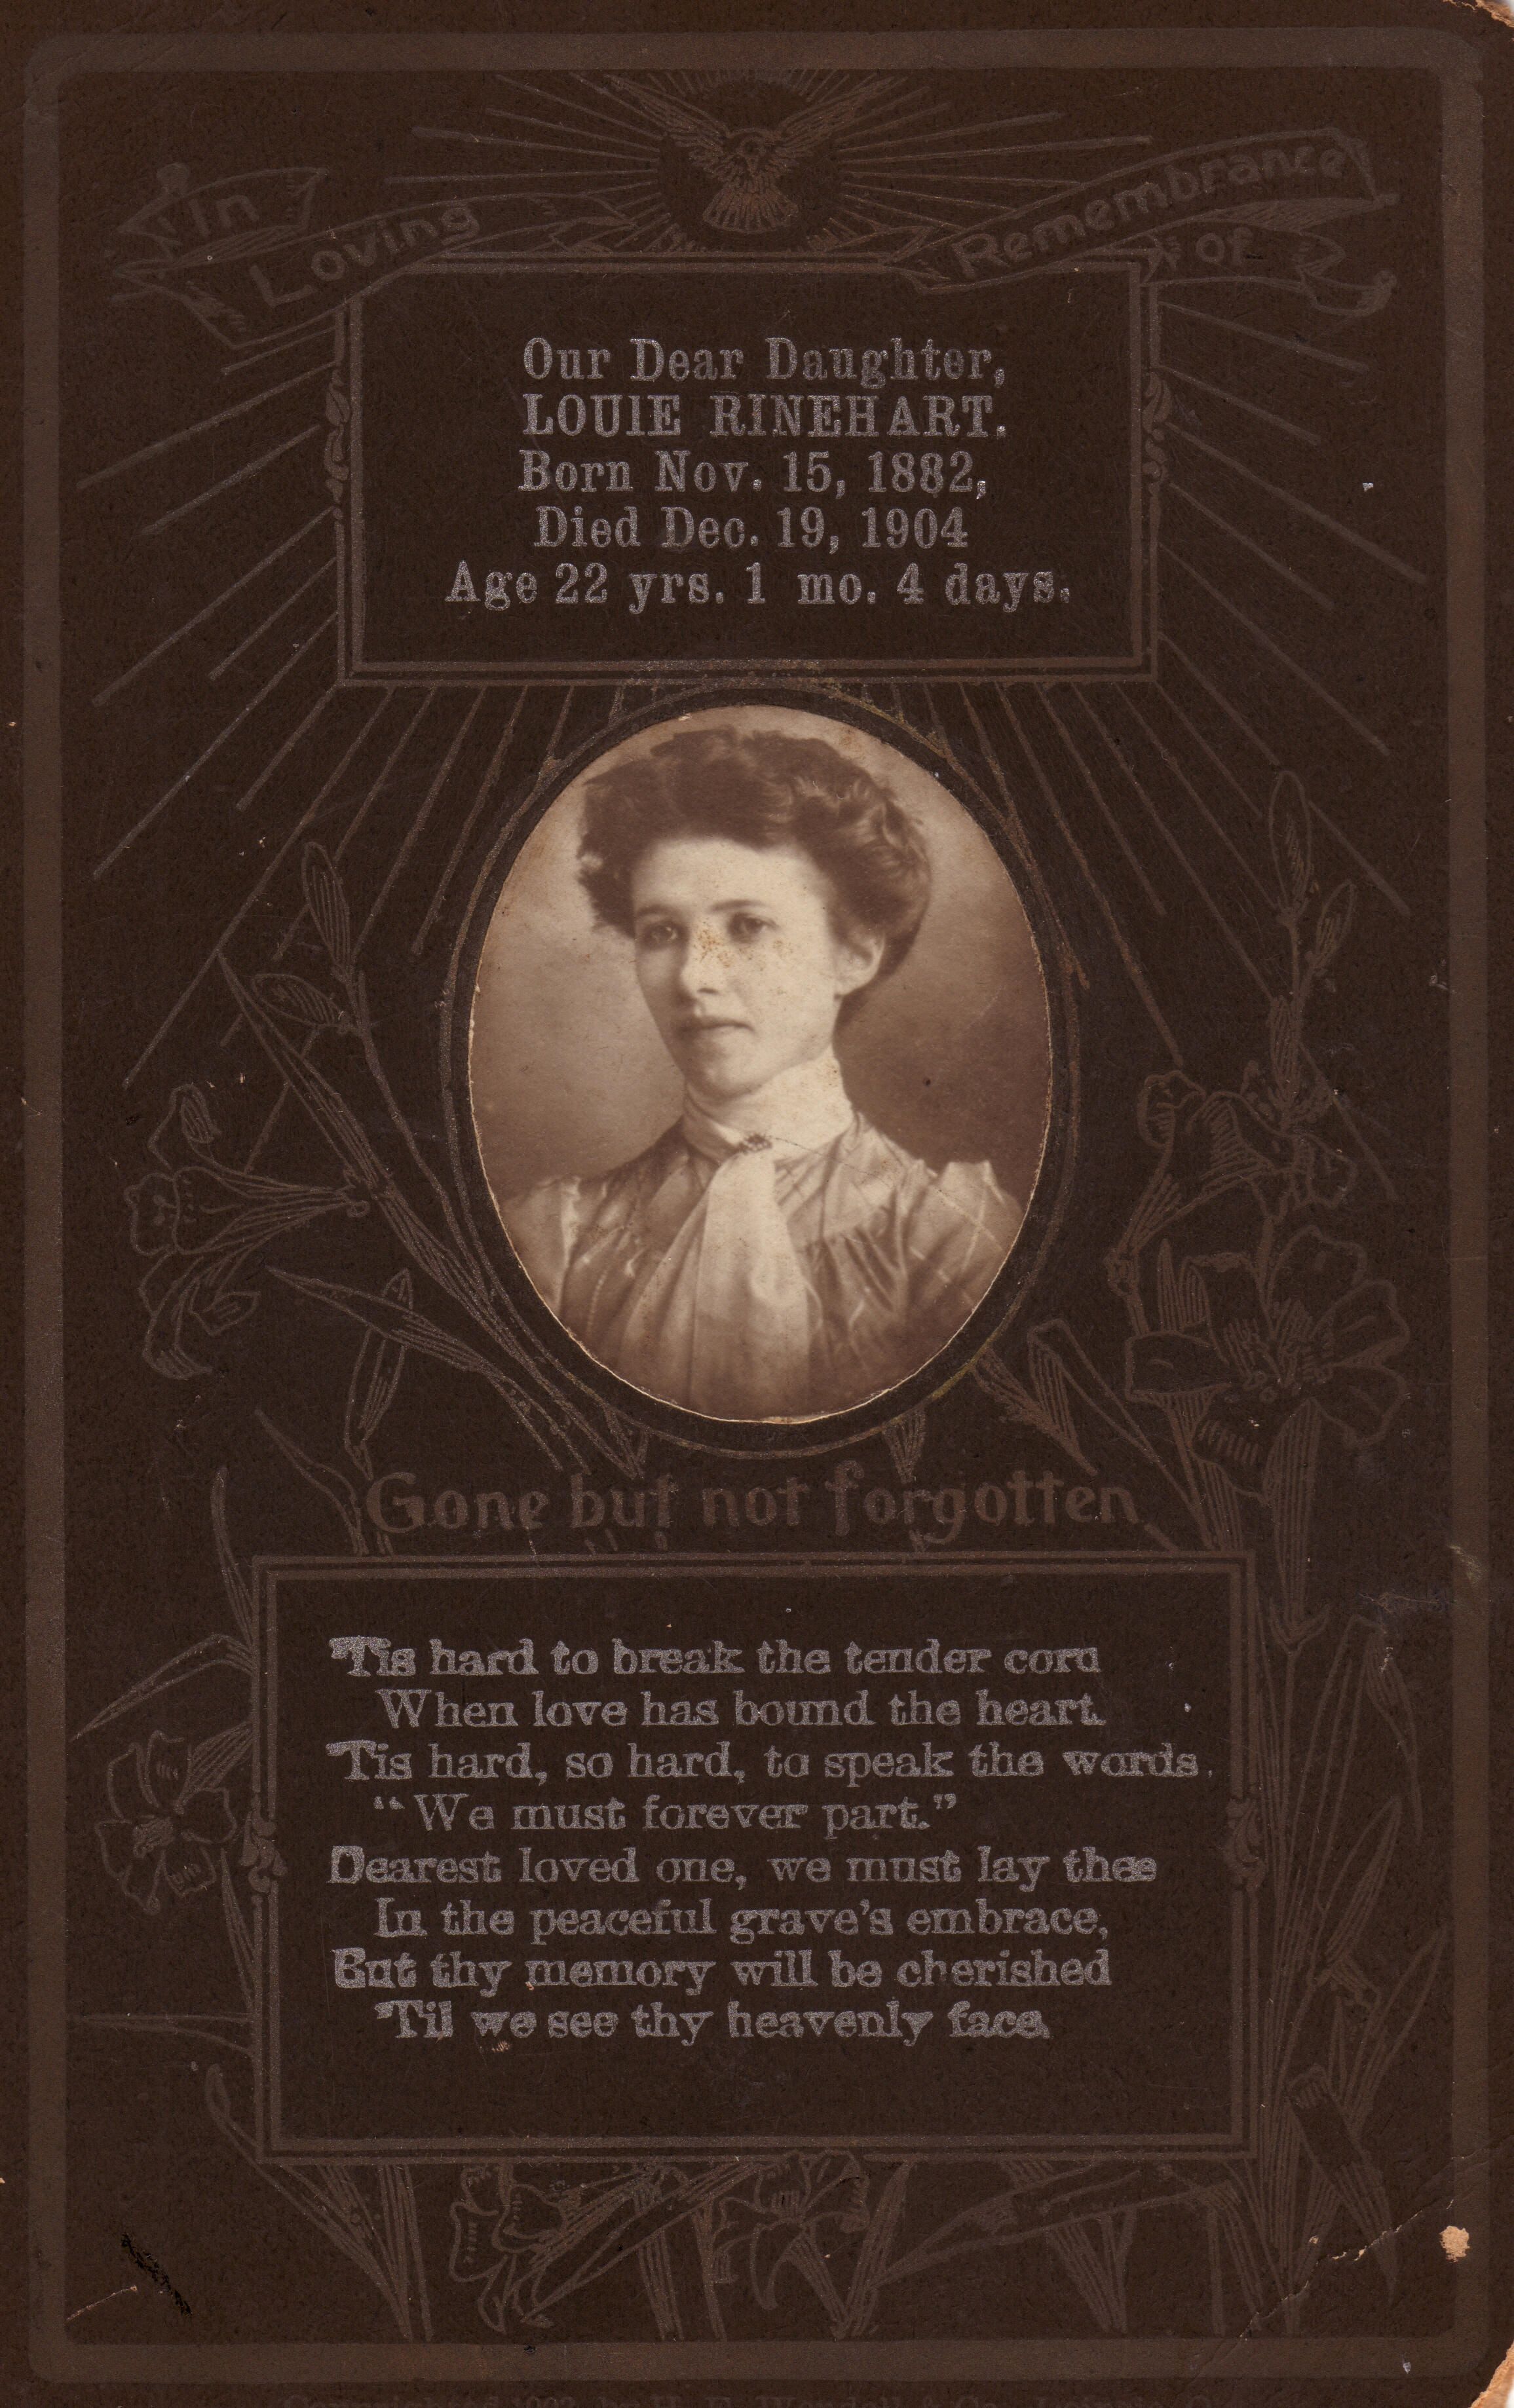 In
Loving
Remembrance
of
Our Dear Daughter,
LOUIE RINEHART.
Born Nov. 15, 1882,
Died Dec. 19, 1904
Age 22 yrs. 1 mo. 4 days.
Gone but not forgotten
'Tis hard to break the tender cord
When love has bound the heart.
'Tis hard, so hard, to speak the words,
"We must forever part."
Dearest loved one, we must lay thee
In the peaceful grave's embrace,
But thy memory will be cherished
'Til we see thy heavenly face.